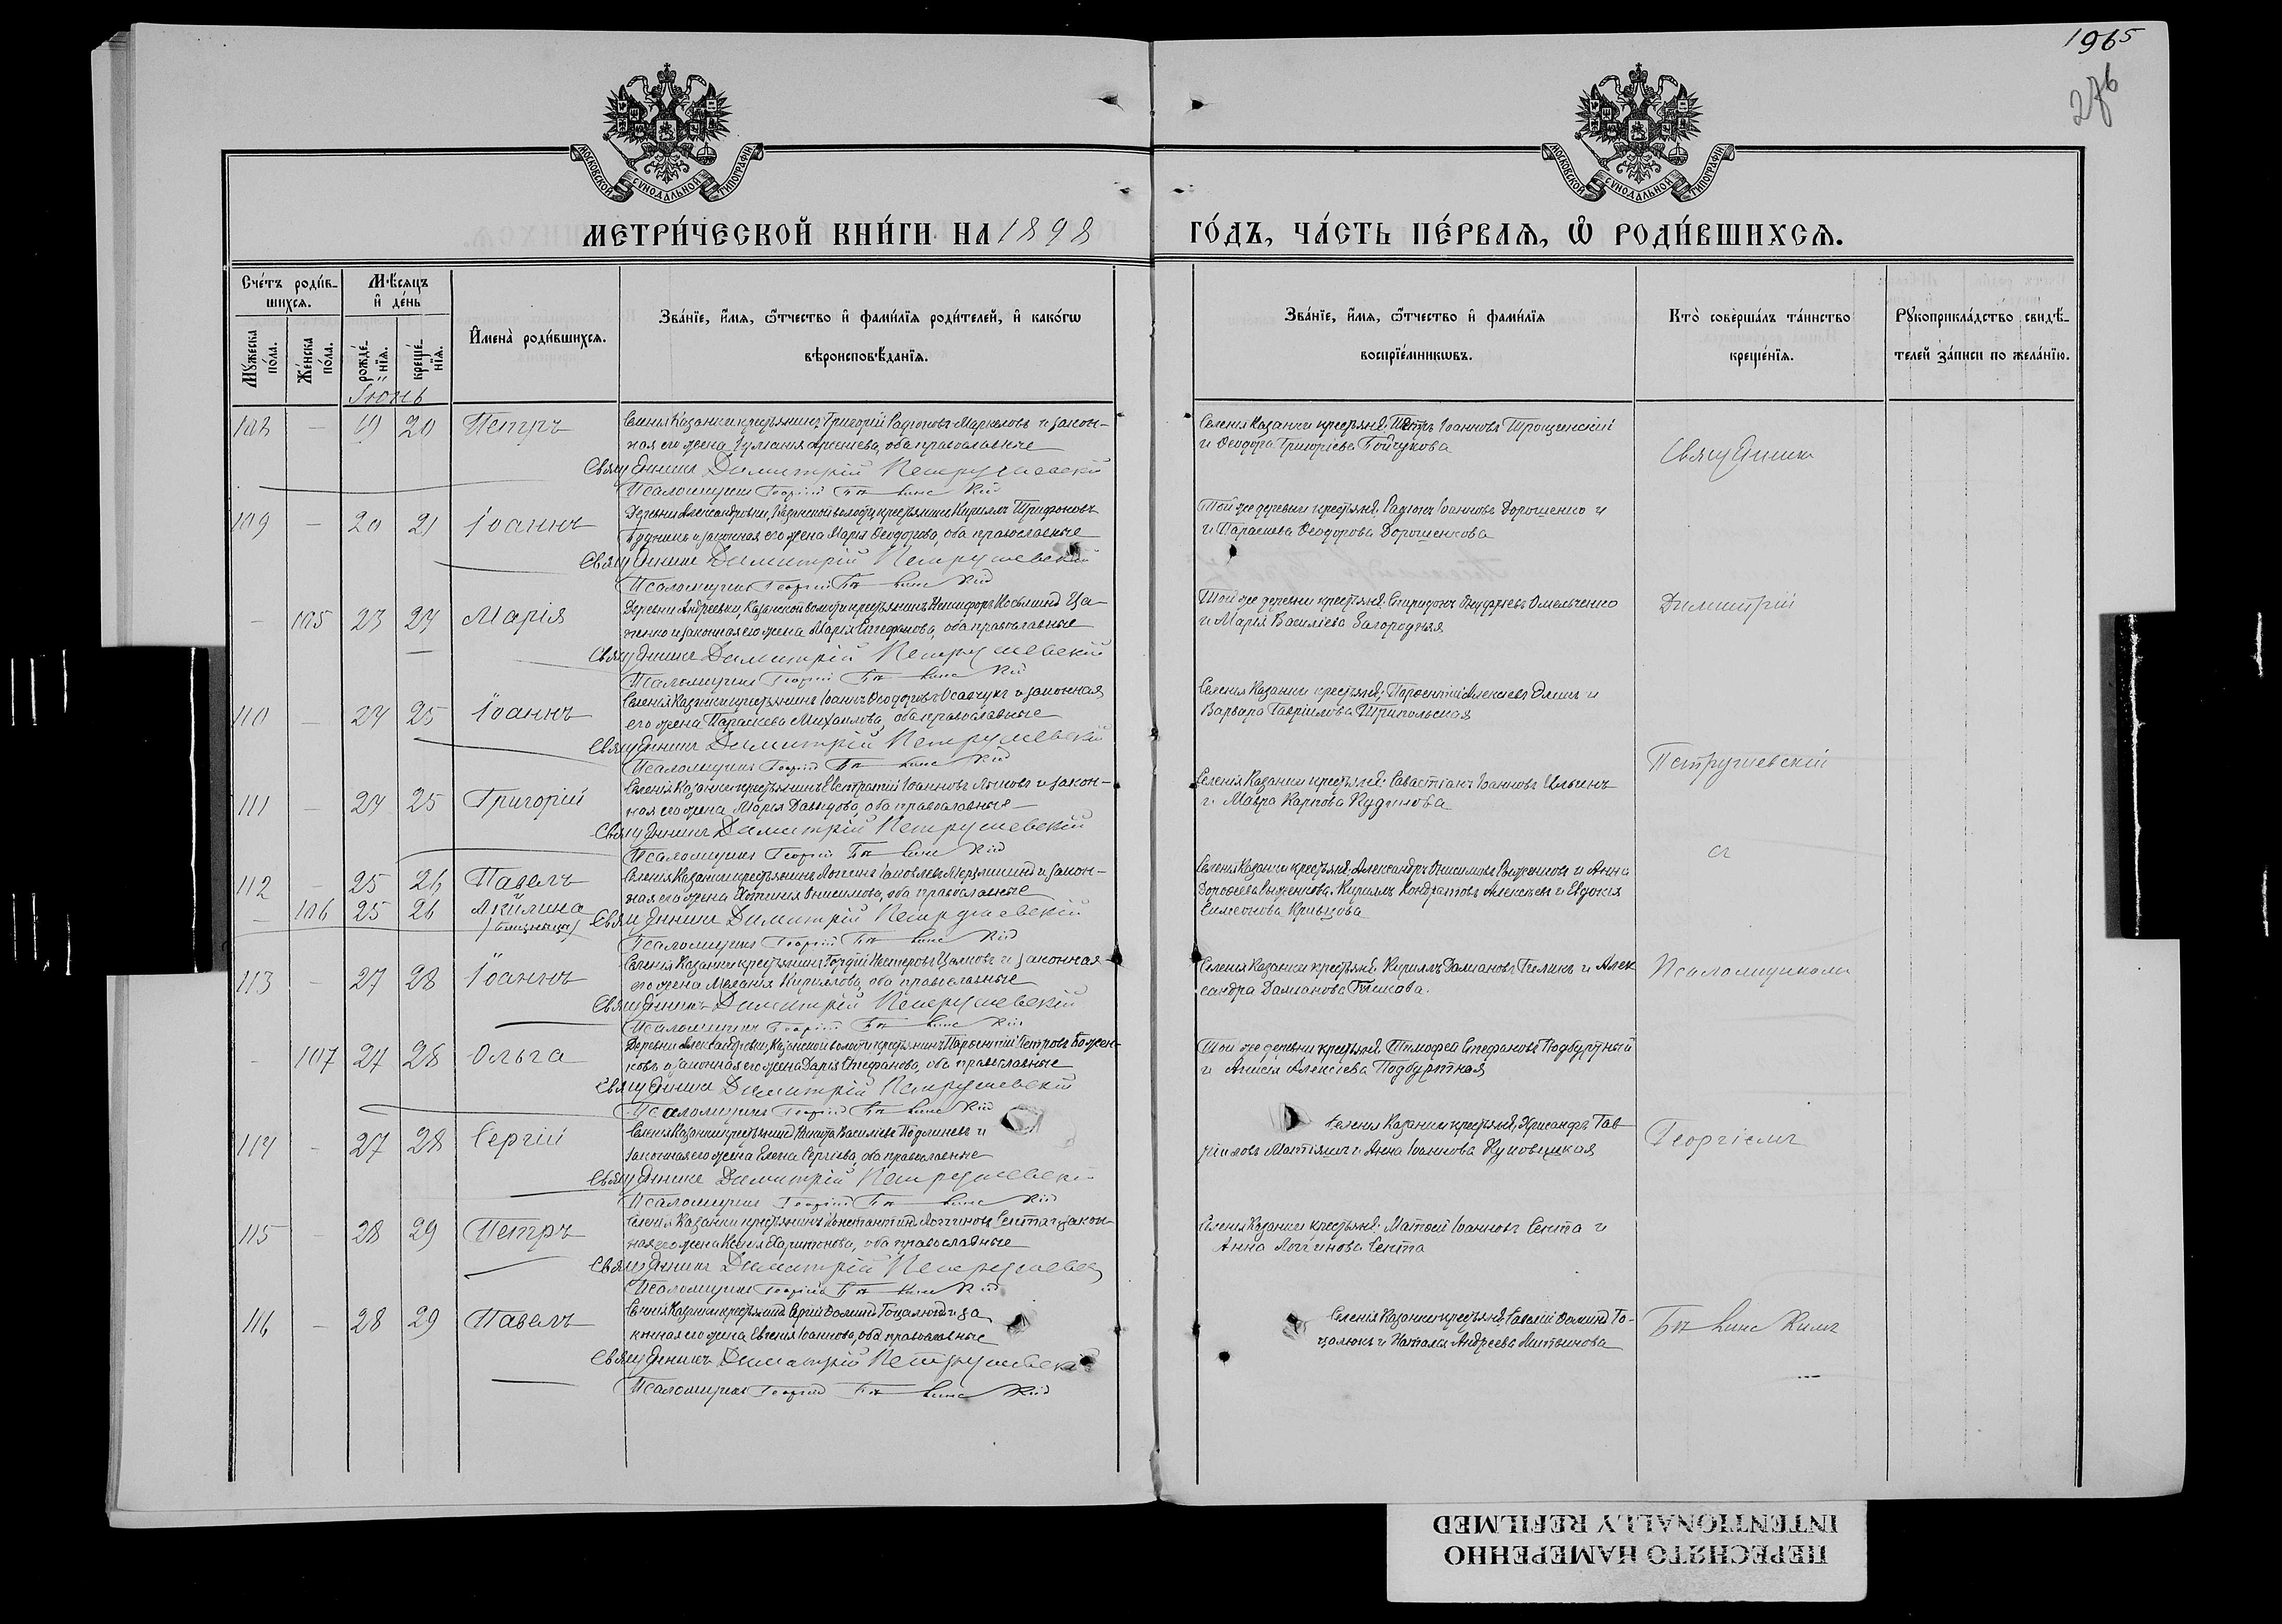 1965
276
МОСКОВСКОЙ СѴНОДАЛЬНОЙ ТИПОГРАФІИ
МОСКОВСКОЙ СѴНОДАЛЬНОЙ ТИПОГРАФІИ
МЕТРИ́ЧЕСКОЙ КНИ́ГИ НА 1898 ГО́ДЪ, ЧА́СТЬ ПЕ́РВАѦ, Ѡ РОДИ́ВШИХСѦ.
Сче́тъ роди́в-
шихсѧ.
Мѣ́сѧцъ
и҆ де́нь
Мꙋ́жеска по́ла.
Же́нска по́ла.
рожде́-нїѧ.
креще́-нїѧ.
И҆мена̀ роди́вшихсѧ.
Зва́нїе, и҆́мѧ, ѻ҆́тчество и҆ фами́лїѧ роди́телей, и҆ како́гѡ
вѣроисповѣ́данїѧ.
Зва́нїе, и҆́мѧ, ѻ҆́тчество и҆ фами́лїѧ
воспрїе́мникѡвъ.
Кто̀ соверша́лъ та́инство
креще́нїѧ.
Рꙋкоприкла́дство свидѣ́-
телей за́писи по жела́нїю.
Іюнь
108 — 19 20 Петръ
Селенія Казанки крестьянинъ Григорій Радіоновъ Маркеловъ и закон-
ная его жена Іуліанія Арсеніева, оба православные
Священникъ Димитрій Петрушевскій
Псаломщикъ Георгій
Селенія Казанки крестьяне: Петръ Іоанновъ Трощинскій
и Ѳеодора Григоріева Бойчукова
Священникъ
109 — 20 21 Іоаннъ
Деревни Александровки, Казанской волости, крестьянинъ Кириллъ Трифоновъ
и законная его жена Марія Ѳеодорова, оба православные
Священникъ Димитрій Петрушевскій
Псаломщикъ Георгій
Той же деревни крестьяне: Радіонъ Іоанновъ Дорошенко и
и Параскева Ѳеодорова Дорошенкова
— 105 23 24 Марія
Деревни Андреевки, Казанской волости крестьянинъ Никифоръ Косьминъ Ца-
ненко и законная его жена Марія Стефанова, оба православные
Священникъ Димитрій Петрушевскій
Псаломщикъ Георгій
Той же деревни крестьяне: Спиридонъ Онуфріевъ Омельченко
и Марія Василіева Загородняя
Димитрій
110 — 24 25 Іоаннъ
Селенія Казанки крестьянинъ Іоаннъ Ѳеодоровъ Осадчукъ и законная
его жена Параскева Михаилова, оба православные
Священникъ Димитрій Петрушевскій
Псаломщикъ Георгій
Селенія Казанки крестьяне: Парѳентій Алексіевъ и
Варвара Гавріилова Трипольская
Петрушевскій
111 — 24 25 Григорій
Селенія Казанки крестьянинъ Евстратій Іоанновъ и закон-
ная его жена Марія Давидова, оба православные
Священникъ Димитрій Петрушевскій
Псаломщикъ Георгій
Селенія Казанки крестьяне: Савастіанъ Іоанновъ Ильинъ
и Мавра Карпова Кудинова
съ
112 — 25 26 Павелъ
— 106 25 26 Акилина
(близнецы)
Селенія Казанки крестьянинъ Логгинъ Іаковлевъ и закон-
ная его жена Хотинія Онисимова, оба православные
Священникъ Димитрій Петрушевскій
Псаломщикъ Георгій
Селенія Казанки крестьяне: Александръ Онисимовъ и Анна
Дороѳеева Кириллъ Кондратовъ Алексѣевъ и Евдокія
Симеонова Кравцова
113 — 27 28 Іоаннъ
Селенія Казанки крестьянинъ Гордій Несторовъ и законная
его жена Меланія Кириллова, оба православные
Священникъ Димитрій Петрушевскій
Псаломщикъ Георгій
Селенія Казанки крестьяне: Кириллъ Даміановъ и Алек
сандра Даміанова
Псаломщикомъ
— 107 27 28 Ольга
Деревни Александровки, Казанской волости крестьянинъ Парѳентій Петровъ Божен-
ковъ и законная его жена Дарія Стефанова, оба православные
Священникъ Димитрій Петрушевскій
Псаломщикъ Георгій
Той же деревни крестьяне: Тимоѳей Стефановъ Подбуртный
и Анисія Алексіева Подбуртная
114 — 27 28 Сергій
Селенія Казанки крестьянинъ Никита Василіевъ и
законная его жена Елена Сергіева, оба православные
Священникъ Димитрій Петрушевскій
Псаломщикъ Георгій
Селенія Казанки крестьяне: Хрисанфъ Гав-
ріиловъ и Анна Іоаннова Куновицкая
Георгіемъ
115 — 28 29 Петръ
Селенія Казанки крестьянинъ Константинъ Логгиновъ Секта и закон-
ная его жена Ксенія Харитонова, оба православные
Священникъ Димитрій Петрушевскій
Псаломщикъ Георгій
Селенія Казанки крестьяне: Матѳей Іоанновъ Секта и
Анна Логгинова Секта
116 — 28 29 Павелъ
Селенія Казанки крестьянинъ Сергій Ѳоминъ Гоцалюкъ и за-
конная его жена Евгенія Іоаннова, оба православные
Священникъ Димитрій Петрушевскій
Псаломщикъ Георгій
Селенія Казанки крестьяне: Савелій Ѳоминъ Го-
цалюкъ и Наталія Андреева Литвинова
ПЕРЕСНЯТО НАМЕРЕННО
INTENTIONALLY REFILMED